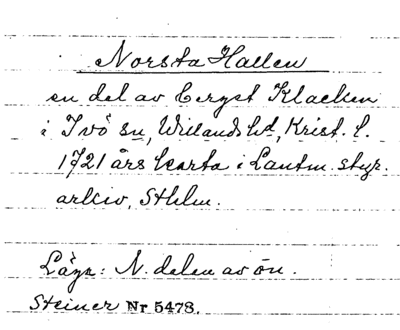 Norsta Hallen
en del av berget Klacken
i Ivö sn, Willands hd, Krist. l.
1721 års karta i Lantm. styr.
arkiv, Sthlm.
Läge: N. delen av ön.
Steiner Nr 5478.